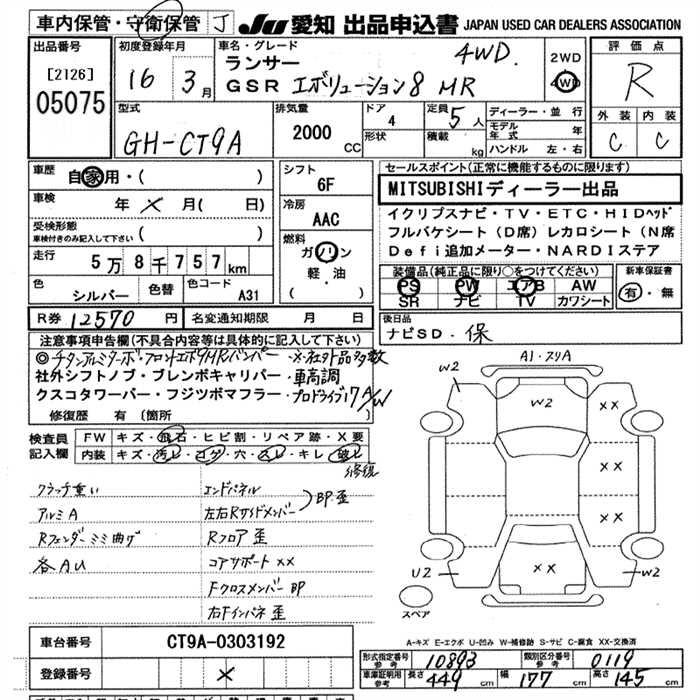 車内保管・守衛保管 J JU 愛知 出品申込書 JAPAN USED CAR DEALERS ASSOCIATION
出品番号 [2126] 05075
初度登録年月 16 3月
車名・グレード ランサー 4WD.
GSR エボリューション8 MR
2WD 4WD
評価点 R
外装 内装
C C
型式 GH-CT9A
排気量 2000 CC
ドア 4 形状
定員 5人 積載 kg
ディーラー・並行
モデル年式 年
ハンドル 左・右
車歴 自家用・( )
車検 年 × 月( 日)
受検形態
車検付きのみ記入して下さい ( )
走行 5万8千757km
色 シルバー 色替 色コード A31
シフト 6F
冷房 AAC
燃料 ガソリン
軽・油
( )
セールスポイント(正常に機能するものに限ります)
MITSUBISHIディーラー出品
イクリプスナビ・TV・ETC・HIDヘッド
フルバケシート(D席)レカロシート(N席
Defi追加メーター・NARDIステア
装備品(純正品に限り○をつけてください)
PS PW エアB AW
SR ナビ TV カワシート
新車保証書
有・無
R券 12570 円 名変通知期限 月 日
後日品
ナビSD・保
注意事項申告欄(不具合内容等は具体的に記入して下さい)
◎チタンアルミターボ・フロントエボ9MRバンパー・×社外品多数
社外シフトノブ・ブレンボキャリパー・車高調
クスコタワーバー・フジツボマフラー・プロドライブ17A/W
修復歴 有(箇所 )
検査員記入欄
FW キズ・飛石・ヒビ割・リペア跡・X要
内装 キズ・汚レ・コゲ・穴・スレ・キレ・破レ
修復
クラッチ重い
アルミA
Rフェンダーミミ曲ゲ
各AU
エンドパネル
左右Rサイドメンバー
BP.歪
Rフロア 歪
コアサポート ××
Fクロスメンバー BP
右Fインパネ 歪
A1・スリA
W2
W2
××
××
××
××
U2
W2
スペア
A-キズ E-エクボ U-凹み W-補修跡 S-サビ C-腐食 XX-交換済
車台番号 CT9A-0303192
登録番号 ×
形式指定番号 参考 10893
類別区分番号 参考 0119
車庫証明用 参考 長さ 449 cm 幅 177 cm 高さ 145 cm